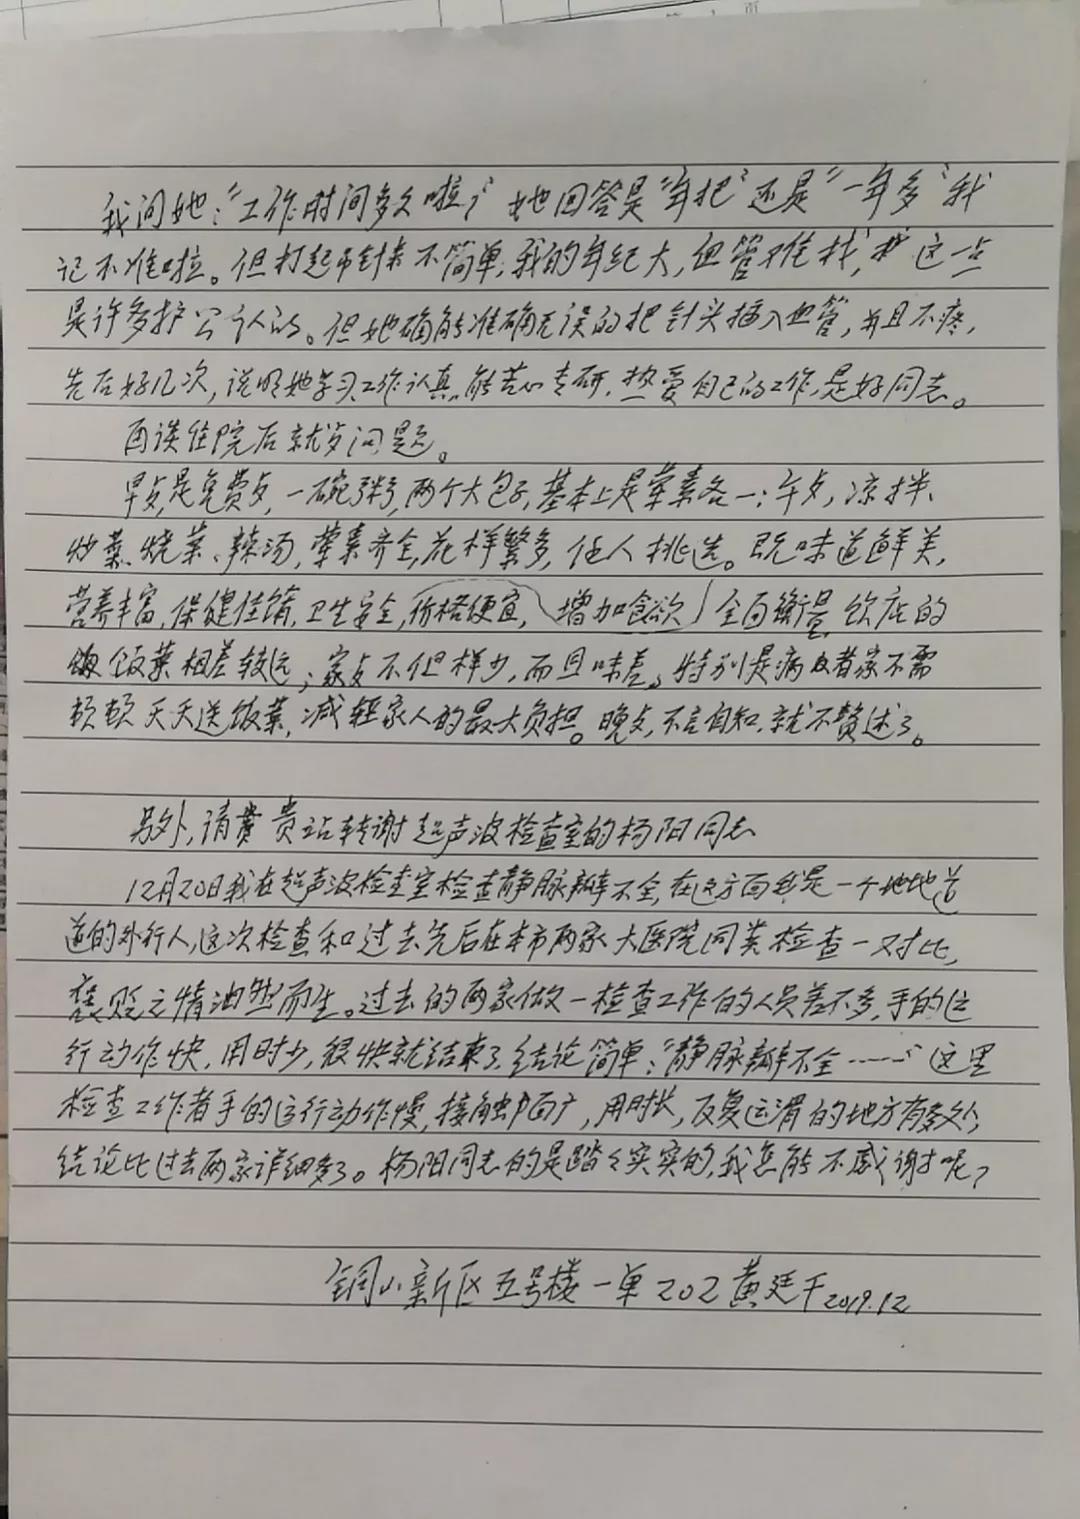 我问她:“工作时间多久啦?”她回答是“年把”还是“一年多”我
记不准啦。但打起吊针来不简单,我的年纪大,血管难找,这一点
是许多护公认的。但她确能准确无误的把针头插入血管,并且不疼,
先后好几次,说明她学习工作认真,能苦心专研,热爱自己的工作,是好同志。
再谈住院后就歺问题。
早歺是免费歺,一碗粥,两个大包子,基本上是荤素各一;午歺,凉拌、
炒菜、烧菜、辣汤,荤素齐全,花样繁多,任人挑选。既味道鲜美,
营养丰富,保健佳馅,卫生安全,价格便宜,增加食欲,全面衡量,饮店的
饭菜相差较远;家歺不但样少,而且味差。特别是病者家不需
顿顿天天送饭菜,减轻家人的最大负担。晚歺,不言自知,就不赘述了。
另外,请贵站转谢超声波检查室的杨阳同志
12月20日我在超声波检查室检查静脉瓣不全,在这方面我是一个地地道
道的外行人,这次检查和过去先后在本市两家大医院同类检查一对比,
褒贬之情油然而生。过去的两家做一检查工作的人员差不多,手的运
行动作快,用时少,很快就结束了,结论简单:“静脉瓣不全……”这里
检查工作者手的运行动作慢,接触面广,用时长,反复运滑的地方有多处,
结论比过去两家详细多了。杨阳同志的是踏々实实的,我怎能不感谢呢?
铜山新区五号楼一单202黄廷干2019.12